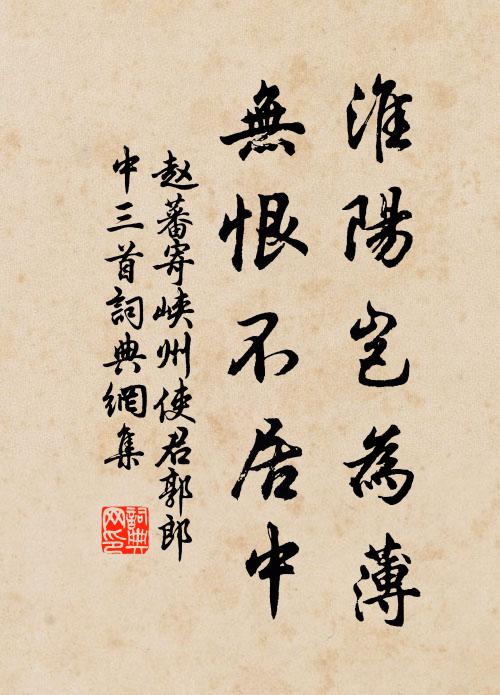 淮陽岂為薄
無恨不居中
赵蕃寄峡州使君郭郎
中三首詞典網集
詞典
网印